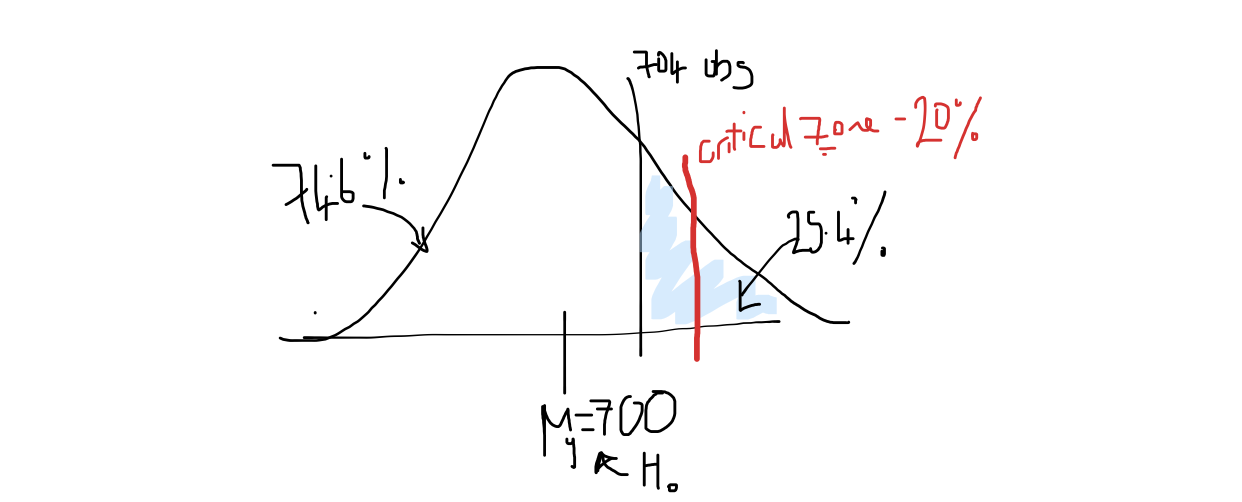 704 obs
critical zone - 20%
74.6%
25.4%
μy=700
H₀